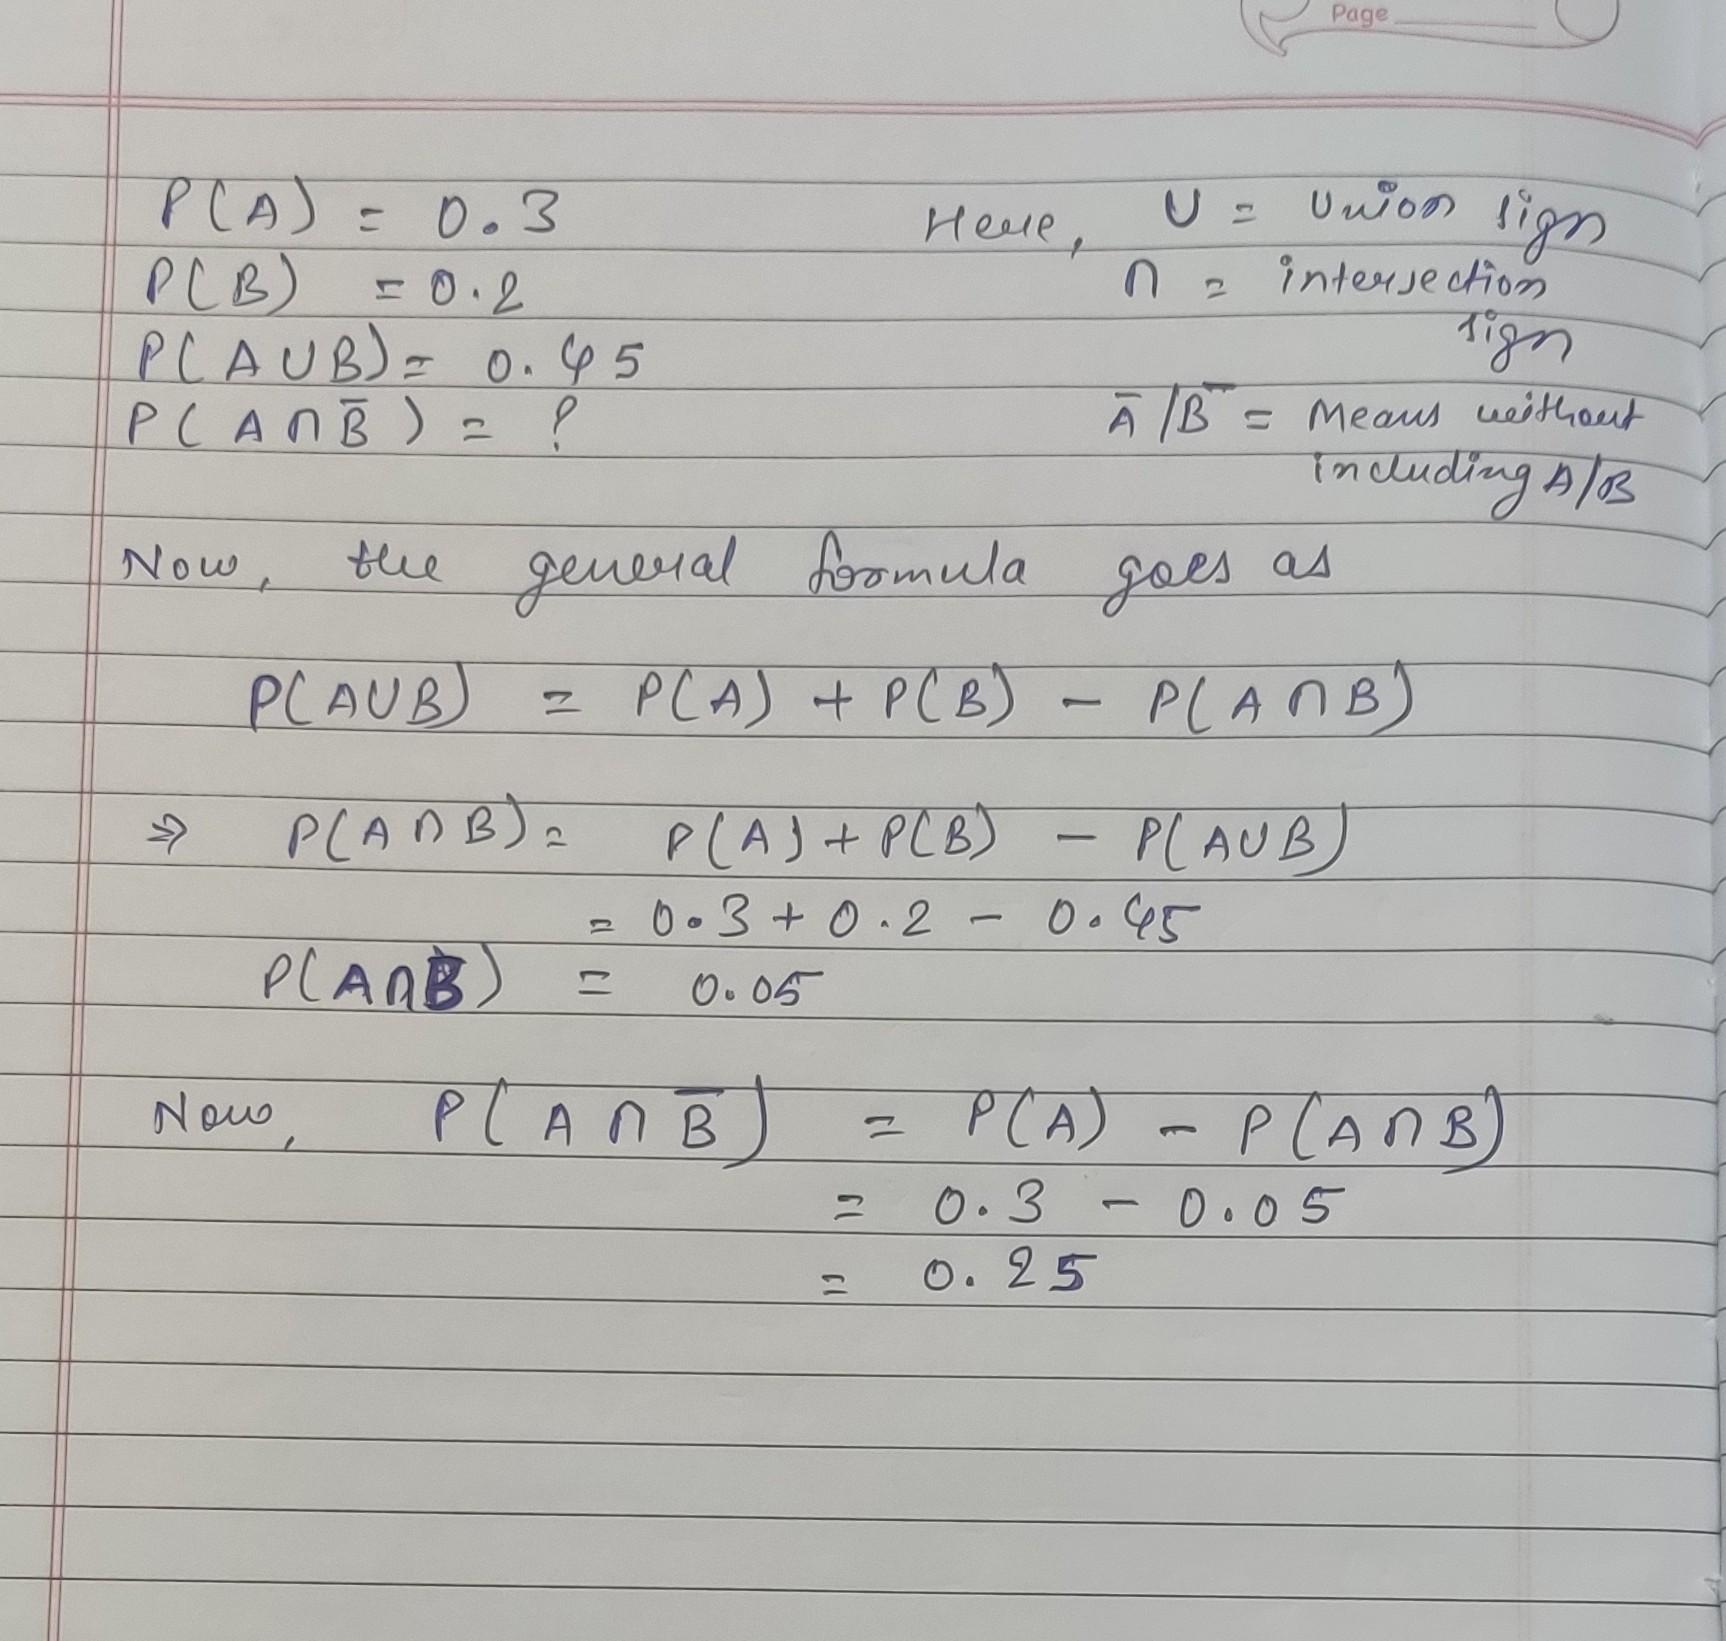 Page
P(A) = 0.3
Here, U = Union sign
P(B) = 0.2
∩ = intersection
sign
P(A∪B) = 0.45
P(A∩B̅) = ?
A̅/B̅ = Means without
including A/B
Now, the general formula goes as
P(A∪B) = P(A) + P(B) - P(A∩B)
⇒ P(A∩B) = P(A) + P(B) - P(A∪B)
= 0.3 + 0.2 - 0.45
P(A∩B) = 0.05
Now, P(A∩B̅) = P(A) - P(A∩B)
= 0.3 - 0.05
= 0.25